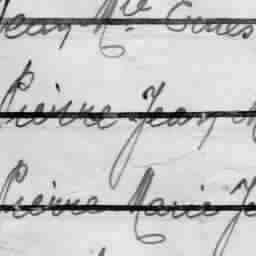 Jean Mie Ernes
Pierre Jean M
Pierre Marie Je